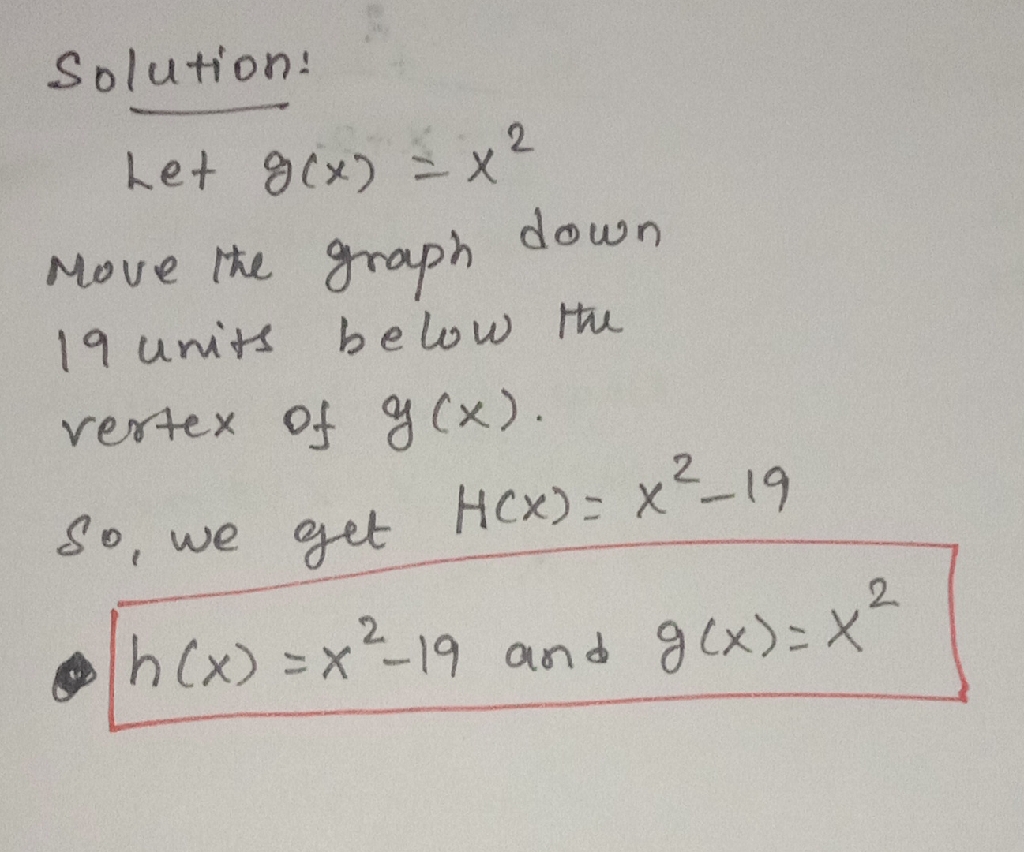 Solution:
Let g(x) = x²
Move the graph down
19 units below the
vertex of g(x).
So, we get H(x) = x² - 19
h(x) = x² - 19 and g(x) = x²